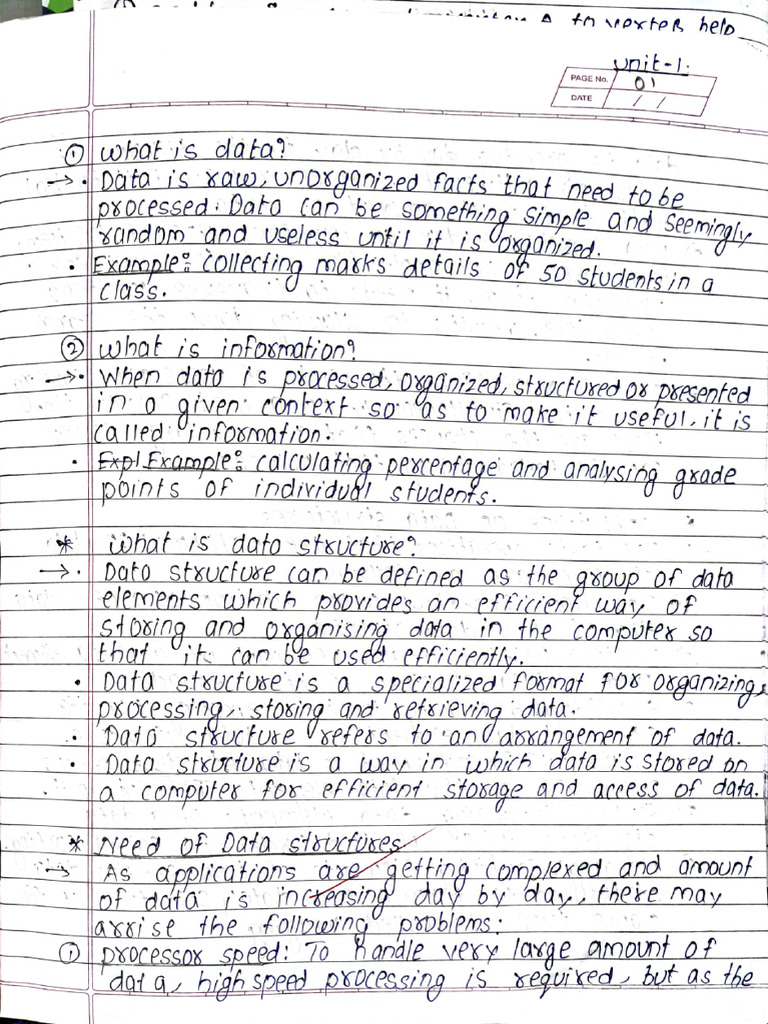 to vertex help
Unit-1.
PAGE No. 01
DATE / /
① What is data?
→ • Data is raw, unorganized facts that need to be
processed. Data can be something simple and seemingly
random and useless until it is organized.
• Example: collecting marks details of 50 students in a
class.
② What is information?
→ • When data is processed, organized, structured or presented
in a given context so as to make it useful, it is
called information.
• Expl Example: calculating percentage and analysing grade
points of individual students.
* What is data structure?
→ • Data structure can be defined as the group of data
elements which provides an efficient way of
storing and organising data in the computer so
that it can be used efficiently.
• Data structure is a specialized format for organizing,
processing, storing and retrieving data.
• Data structure refers to an arrangement of data.
• Data structure is a way in which data is stored on
a computer for efficient storage and access of data.
* Need of Data structures
→ As applications are getting complexed and amount
of data is increasing day by day, there may
arrise the following problems:
① processor speed: To handle very large amount of
data, high speed processing is required, but as the